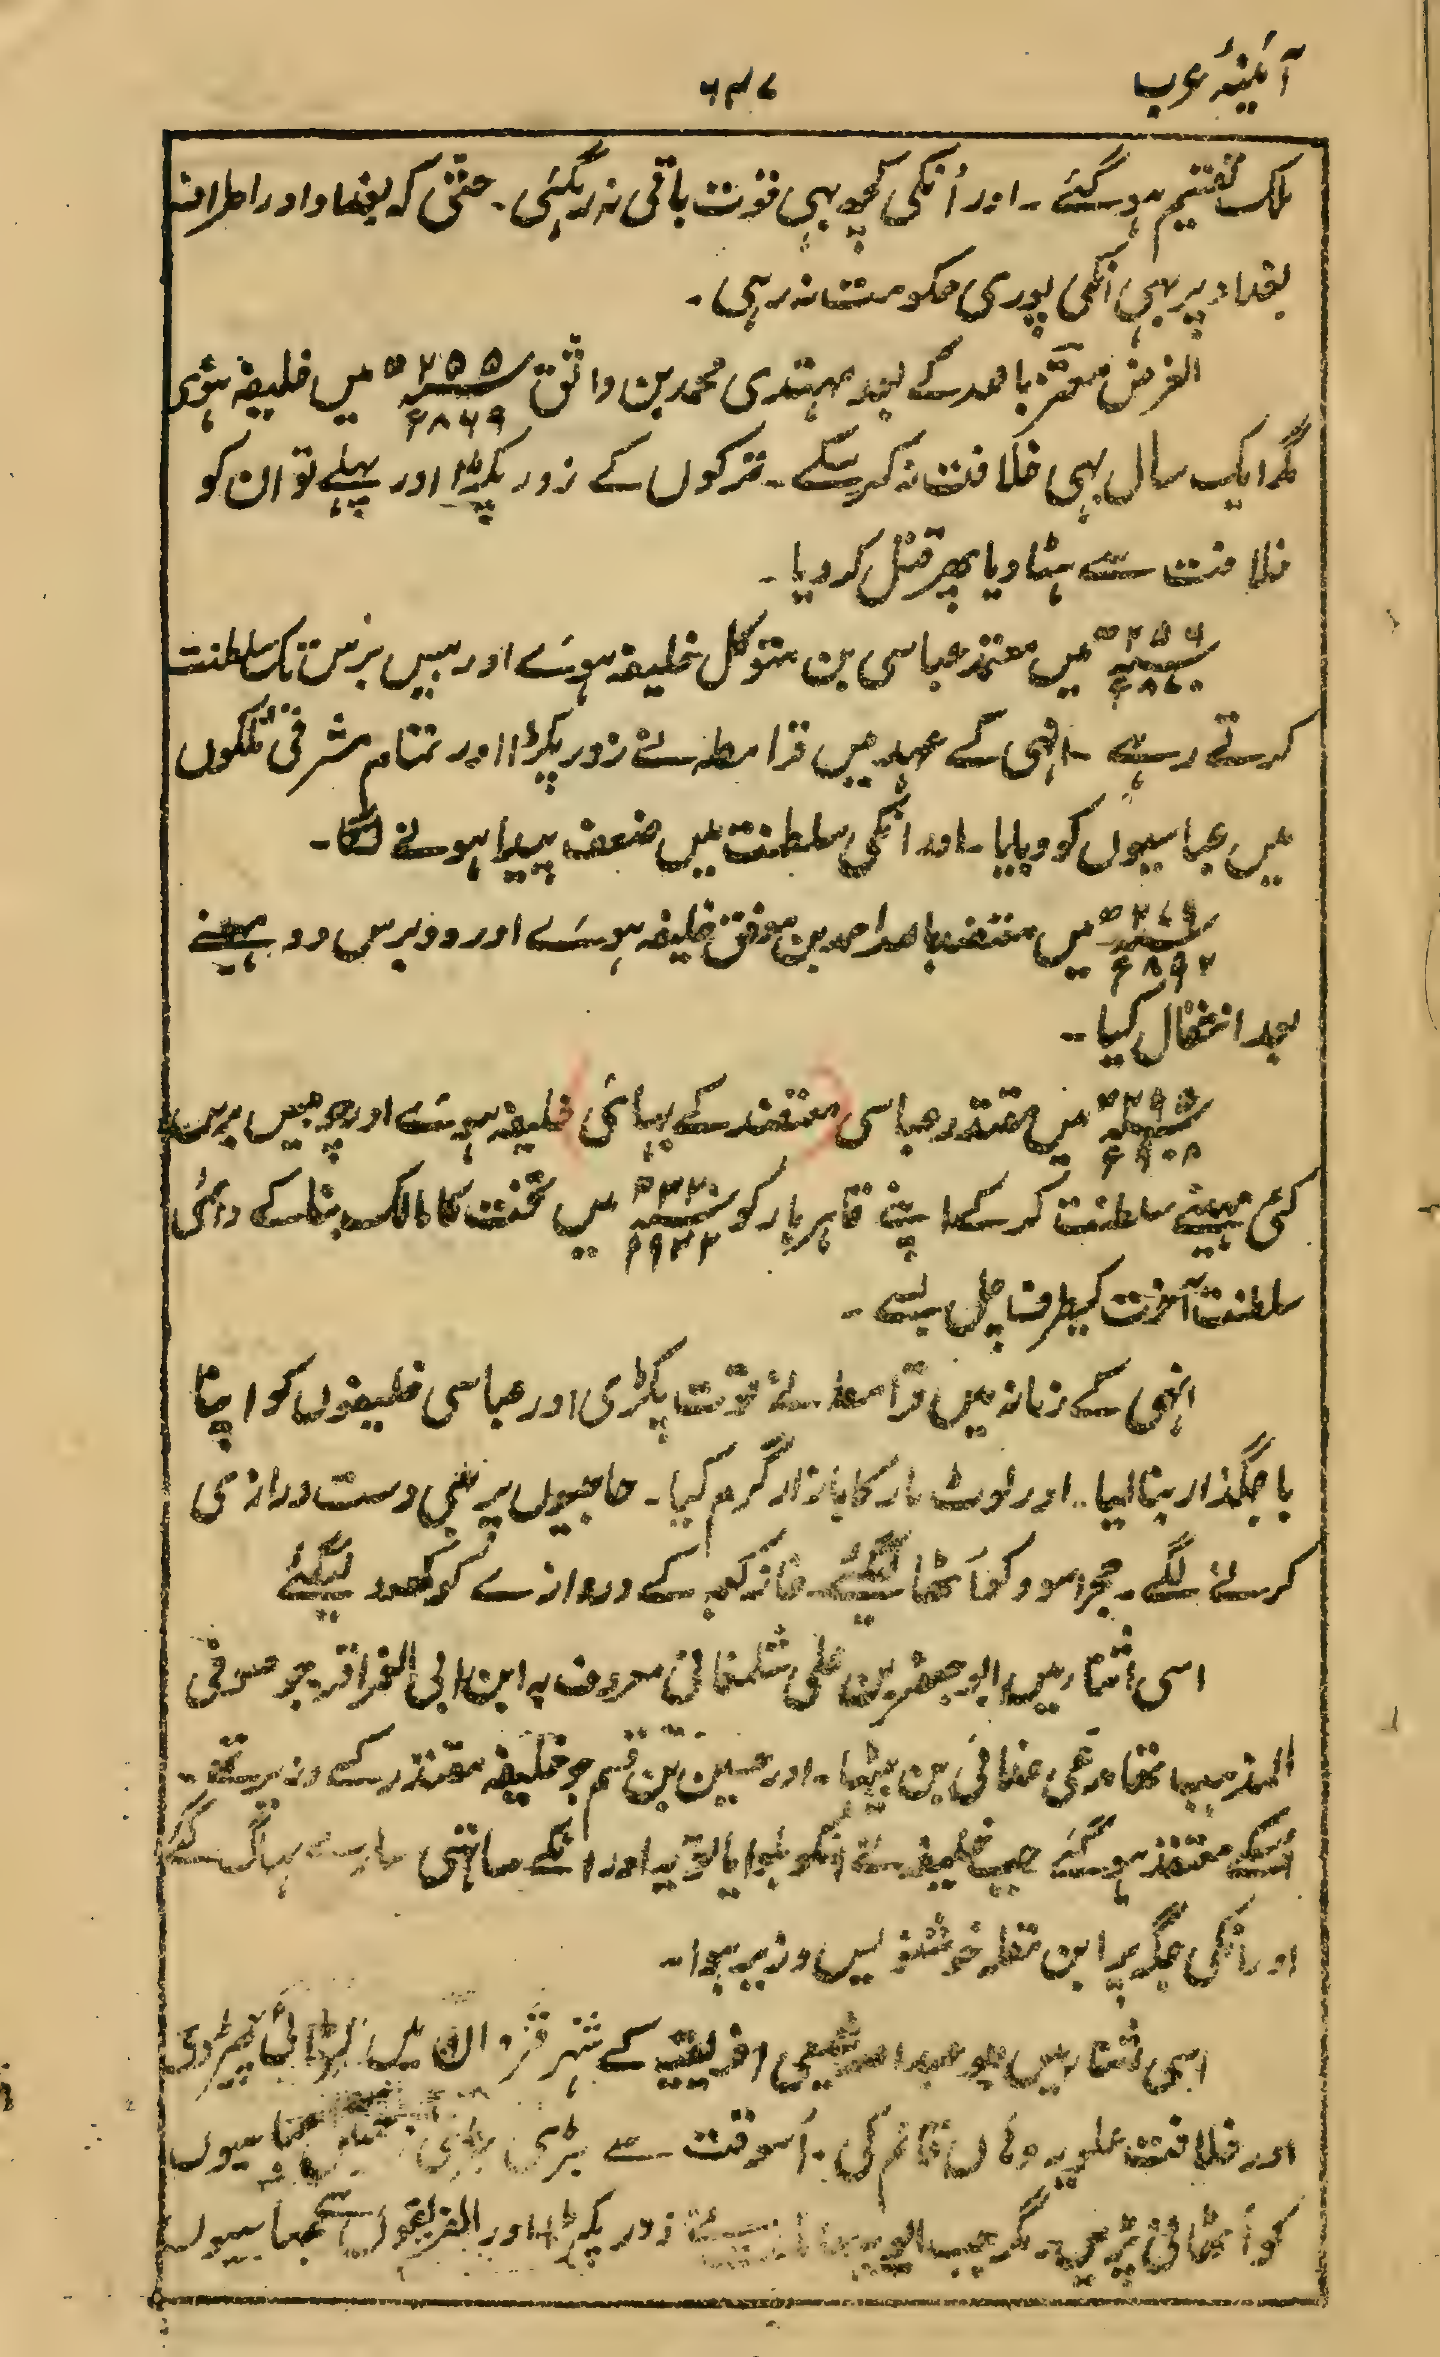 آئینۂ عرب
۶۴۷
ملک تقسیم ہو گئے ۔ اور اُنکی کچھ بہی قوت باقی نہ رہگئی ۔ حتّٰی کہ بغداد اور اطراف
بغداد پر بہی انکی پوری حکومت نہ رہی ۔
الغرض معتز باللہ کے بعد مہتدی محمد بن واثق ۲۵۵ھ ۸۶۹ء میں خلیفہ ہوئی
مگر ایک سال بہی خلافت نہ کر سکے ۔ ترکوں کے زور پکڑا اور پہلے تو ان کو
خلافت سے ہٹا دیا پھر قتل کر دیا ۔
۲۵۶ھ ۸۷۰ء میں معتمد عباسی بن متوکل خلیفہ ہوئے اور بیس برس تک سلطنت
کرتے رہے ۔ انہی کے عہد میں قرامطہ نے زور پکڑا اور تمام مشرقی ملکوں
میں عباسیوں کو دبایا ۔ اور انکی سلطنت میں ضعف پیدا ہونے لگا ۔
۲۷۹ھ ۸۹۲ء میں معتضد باللہ احمد بن موفق خلیفہ ہوئے اور دو برس دو مہینے
بعد انتقال کیا ۔
۲۹۵ھ ۹۰۸ء میں مقتدر عباسی معتضد کے بہائی خلیفہ ہوئے اور چوبیس برس
کئی مہینے سلطنت کر کے اپنے قاہر یار کو ۳۲۰ھ ۹۳۲ء میں تخت کا مالک بنا کے دائمی
سلطنت آخرت کیطرف چل بسے ۔
انہی کے زمانہ میں قرامطہ نے قوت پکڑی اور عباسی خلیفوں کو اپنا
باجگذار بنا لیا ۔ اور لوٹ مار کا بازار گرم کیا ۔ حاجیوں پر بھی دست درازی
کرنے لگے ۔ حجر اسود کو اُٹھا لیگئے ۔ خانہ کعبہ کے دروازے کو کھود لیگئے
اسی اثنا میں ابو جعفر بن علی شلمغانی معروف بہ ابن ابی الغراقر جو صوفی
المذہب تھا مدعی خدائی بن بیٹھا ۔ اور حسین بن قسم جو خلیفہ مقتدر کے وزیر تھے ۔
اُسکے معتقد ہو گئے جب خلیفہ نے انکو بلوایا تو یہ اور انکے ساتھی سارے بہاگ گئے
اور انکی جگہ پر ابن مقلہ خوشنویس وزیر ہوا ۔
اسی اثنا میں ابو عبد اللہ شیعی افریقیہ کے شہر میں لڑائی چھیڑ دی
اور خلافت علویہ وہاں قائم کی ۔ اُسوقت سے بڑی بڑی عباسیوں
کو اُٹھانی پڑیں ۔ مگر جب نے زور پکڑا اور عباسیوں